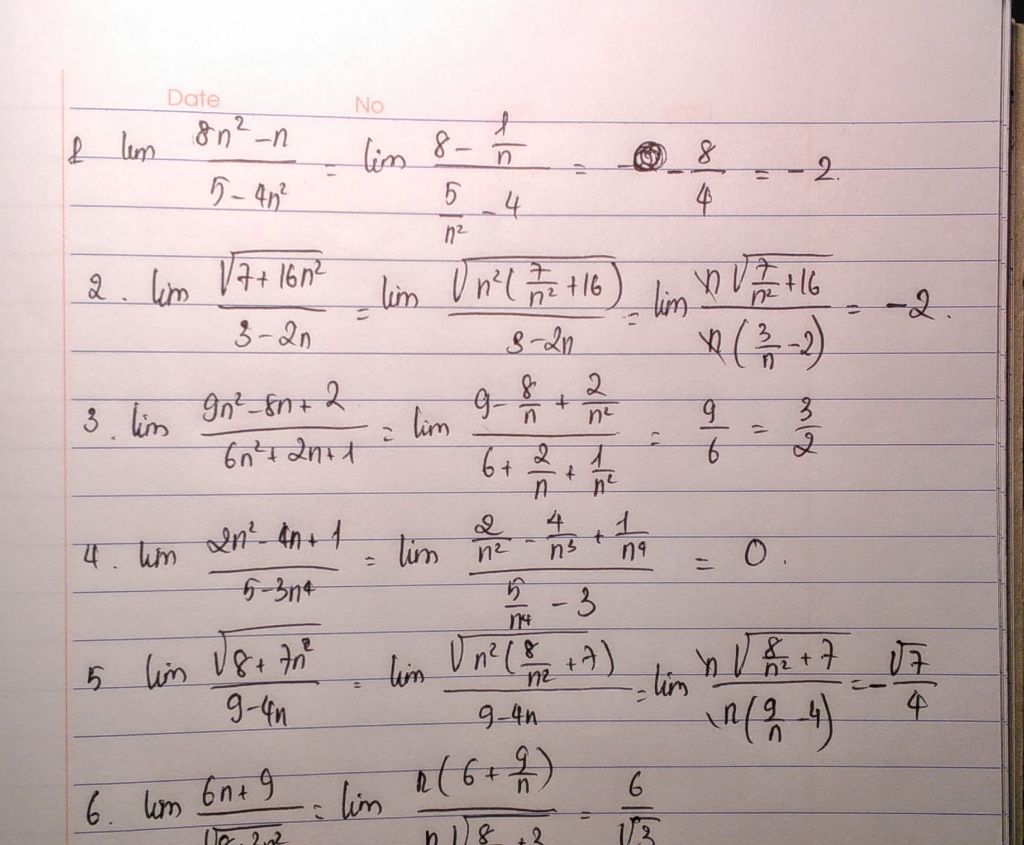 Date No
1 lim (8n² - n)/(5 - 4n²) = lim (8 - 1/n)/(5/n² - 4) = - - 8/4 = -2.
2. lim √(7 + 16n²)/(3 - 2n) = lim √(n²(7/n² + 16))/(3 - 2n) = lim n√(7/n² + 16)/(n(3/n - 2)) = -2.
3. lim (9n² - 8n + 2)/(6n² + 2n + 1) = lim (9 - 8/n + 2/n²)/(6 + 2/n + 1/n²) = 9/6 = 3/2
4. lim (2n² - 4n + 1)/(5 - 3n⁴) = lim (2/n² - 4/n³ + 1/n⁴)/(5/n⁴ - 3) = 0.
5 lim √(8 + 7n²)/(9 - 4n) = lim √(n²(8/n² + 7))/(9 - 4n) = lim n√(8/n² + 7)/(n(9/n - 4)) = -√7/4
6. lim (6n + 9)/ = lim n(6 + 9/n)/ = 6/√3